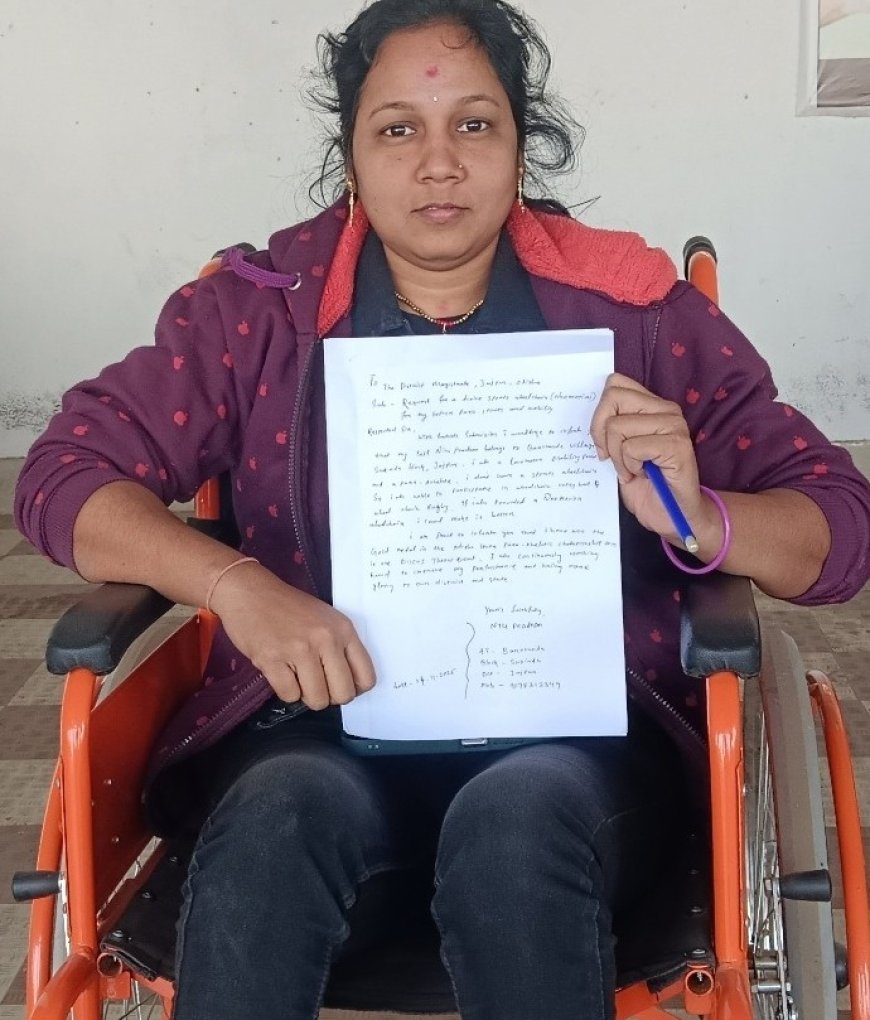 To The District Magistrate, Jajpur, Odisha
Sub - Request for a Active Sports wheelchair (Neomotion)
for my better Para sports and mobility
Respected Sir,
With Humble Submission I would like to inform
that my self Nitu Pradhan belongs to Village
Block, Jajpur. I am a Locomotor Disability
and a Para-Athlete. I don't have a sports wheelchair
So I am unable to Participate in wheelchair
wheel chair Rugby. If I am Provided a
wheelchair I could make it better
I am Proud to inform you that I have won the
Gold medal in the Para-Athletic championship
in the Discus Throw Event. I am continuously working
hard to improve my performance and bring more
glory to our district and state
Your's faithfully,
Nitu Pradhan
AT -
Block -
Dist - Jajpur
Mob -
Date -